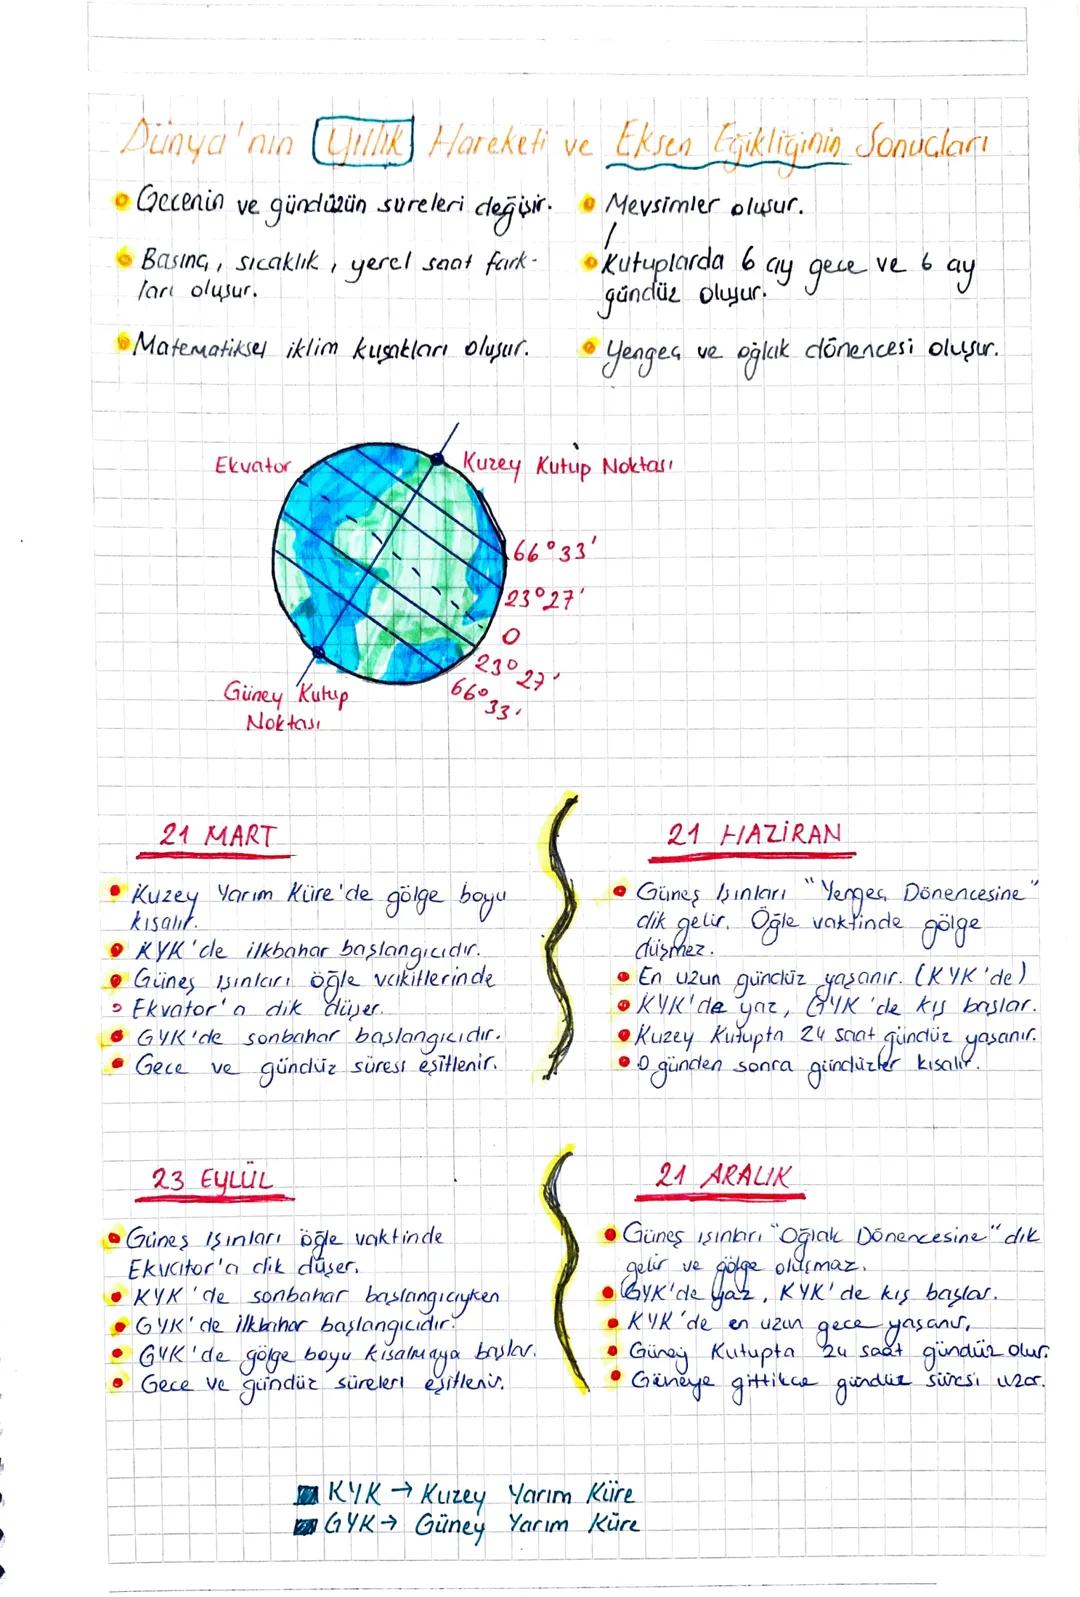 Dünya'nın Yıllık Hareketi ve Eksen Eğikliğinin Sonuçları
Gecenin ve gündüzün süreleri değişir.
Basınç, sıcaklık, yerel saat fark-
ları oluşur.
Matematiksel iklim kuşakları oluşur.
Mevsimler oluşur.
Kutuplarda 6 ay gece ve 6 ay
gündüz oluşur.
Yengeç ve oğlak dönencesi oluşur.
Ekvator
Kuzey Kutup Noktası
66°33'
23°27'
0
23°27'
66°33'
Güney Kutup
Noktası
21 MART
Kuzey Yarım Küre'de gölge boyu
kısalır.
KYK'de ilkbahar başlangıcıdır.
Güneş ışınları öğle vakitlerinde
Ekvator'a dik düşer.
GYK'de sonbahar başlangıcıdır.
Gece ve gündüz süresi eşitlenir.
21 HAZİRAN
Güneş Işınları "Yengeç Dönencesine"
dik gelir. Öğle vaktinde gölge
düşmez.
En uzun gündüz yaşanır. (KYK'de)
KYK'de yaz, GYK'de kış başlar.
Kuzey Kutupta 24 saat gündüz yaşanır.
O günden sonra gündüzler kısalır.
23 EYLÜL
Güneş Işınları öğle vaktinde
Ekvator'a dik düşer.
KYK'de sonbahar başlangıcıyken
GYK'de ilkbahar başlangıcıdır.
GYK'de gölge boyu kısalmaya başlar.
Gece ve gündüz süreleri eşitlenir.
21 ARALIK
Güneş ışınları "Oğlak Dönencesine" dik
gelir ve gölge oluşmaz.
GYK'de yaz, KYK'de kış başlar.
KYK'de en uzun gece yaşanır.
Güney Kutupta 24 saat gündüz olur.
Güneye gittikçe gündüz süresi uzar.
KYK → Kuzey Yarım Küre
GYK → Güney Yarım Küre